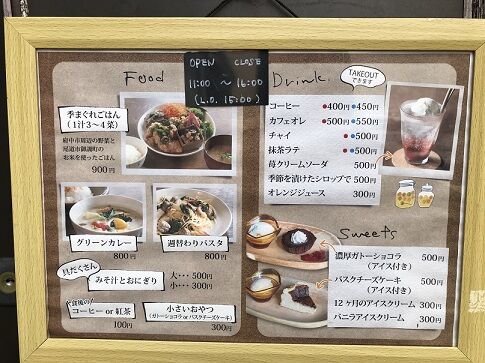 OPEN CLOSE
11:00 ～ 16:00
(L.O. 15:00)
Food
季まぐれごはん
（1汁3～4菜）
府中市周辺の野菜と
尾道市御調町の
お米を使ったごはん
900円
グリーンカレー
800円
週替わりパスタ
800円
具だくさん
みそ汁とおにぎり
大・・・500円
小・・・350円
食後の
コーヒー or 紅茶
100円
小さいおやつ
（ガトーショコラ or バスクチーズケーキ）
300円
Drink.
TAKEOUT
できます
コーヒー ●400円 ●450円
カフェオレ ●500円 ●550円
チャイ ●500円
抹茶ラテ ●500円
苺クリームソーダ 500円
季節を漬けたシロップで 500円
オレンジジュース 300円
Sweets
濃厚ガトーショコラ 500円
（アイス付き）
バスクチーズケーキ 500円
（アイス付き）
12ヶ月のアイスクリーム 300円
バニラアイスクリーム 300円